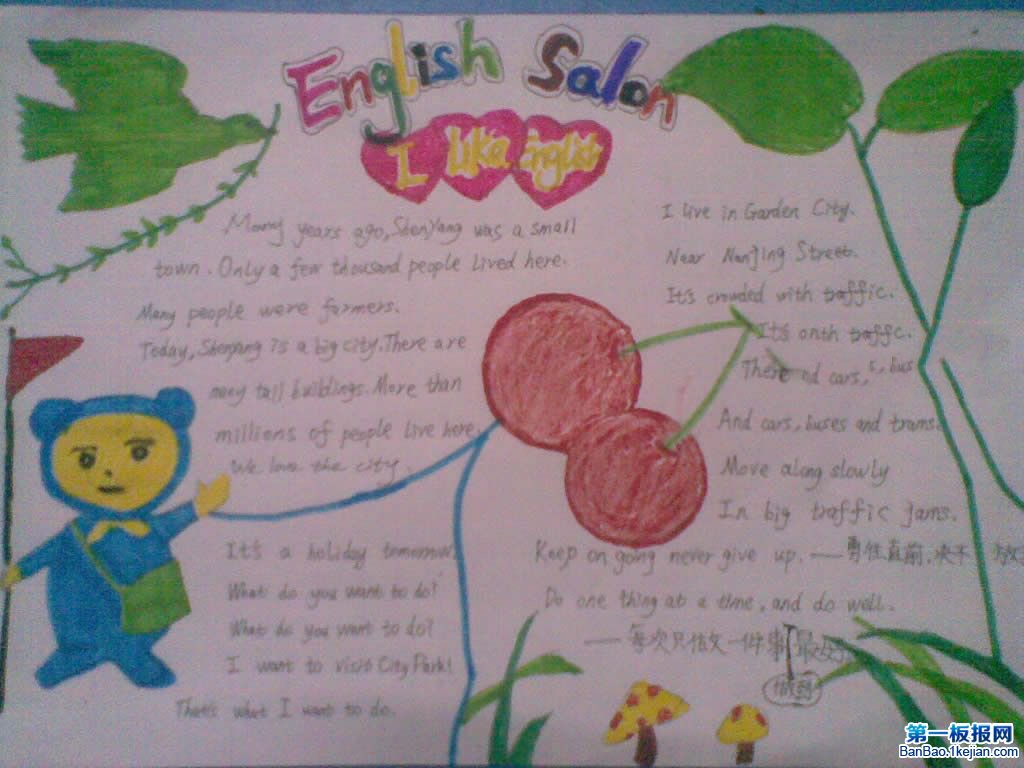 English Salon
I like English
Many years ago, ShenYang was a small
town. Only a few thousand people lived here.
Many people were farmers.
Today, Shenyang is a big city. There are
many tall buildings. More than
millions of people live here.
We love the city.
It's a holiday tomorrow.
What do you want to do?
What do you want to do?
I want to visit City Park!
That's what I want to do.
I live in Garden City.
Near Nanjing Street.
It's crowded with traffic.
It's onth traffc.
There nd cars, s, bus
And cars, buses and trams.
Move along slowly
In big traffic jams.
Keep on going never give up. ——勇往直前,决不 放
Do one thing at a time, and do well.
——每次只做一件事 最好
做到
第一板报网
BanBao.1kejian.com